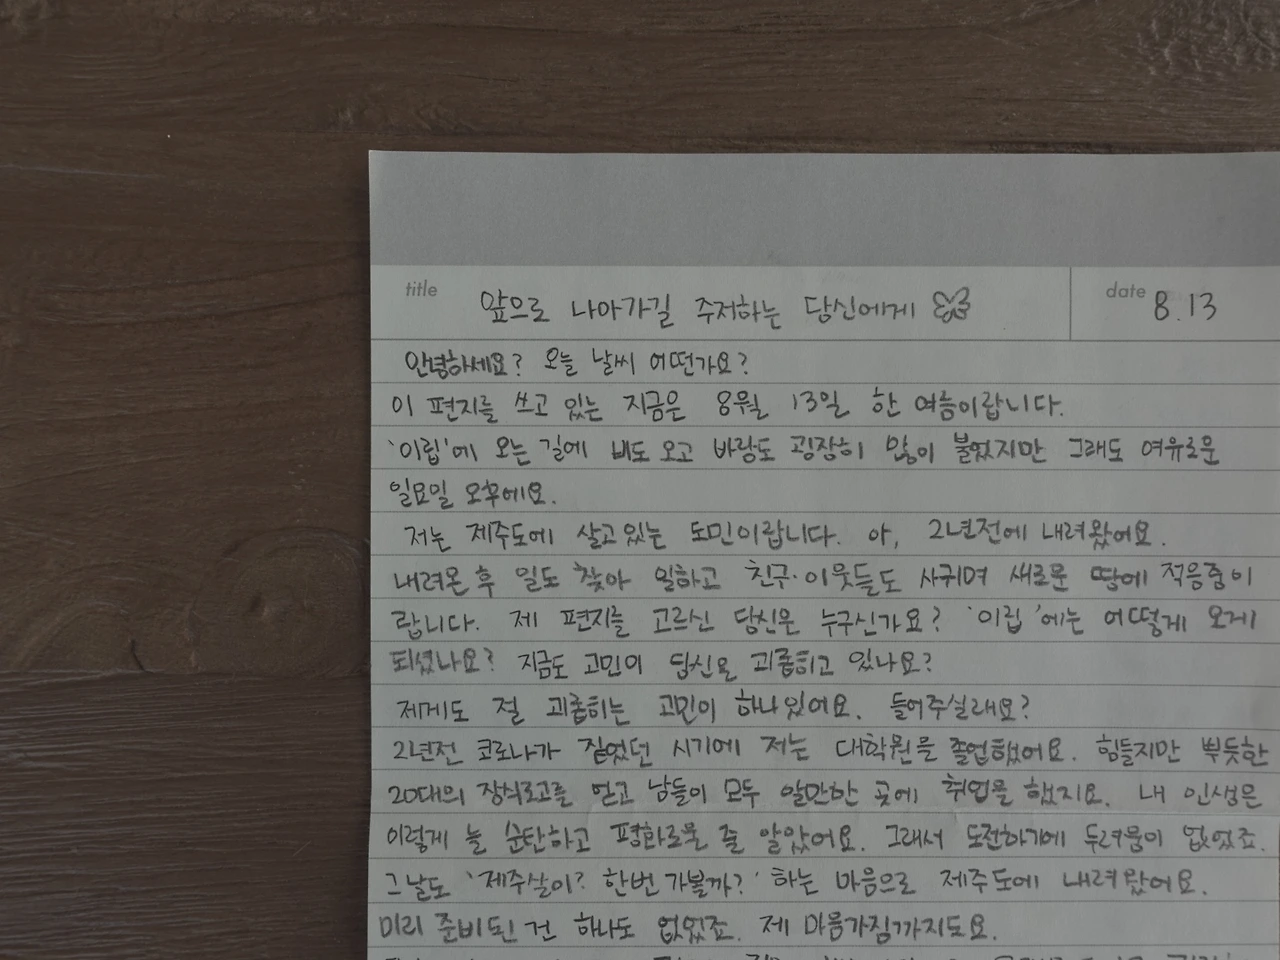 title 앞으로 나아가길 주저하는 당신에게 date 8.13
안녕하세요? 오늘 날씨 어떤가요?
이 편지를 쓰고 있는 지금은 8월 13일 한 여름이랍니다.
'이립'에 오는 길에 비도 오고 바람도 굉장히 많이 불었지만 그래도 여유로운
일요일 오후에요.
저는 제주도에 살고있는 도민이랍니다. 아, 2년전에 내려왔어요.
내려온 후 일도 찾아 일하고 친구·이웃들도 사귀며 새로운 땅에 적응중이
랍니다. 제 편지를 고르신 당신은 누구신가요? '이립'에는 어떻게 오게
되셨나요? 지금도 고민이 당신을 괴롭히고 있나요?
제게도 절 괴롭히는 고민이 하나있어요. 들어주실래요?
2년전 코로나가 짙었던 시기에 저는 대학원을 졸업했어요. 힘들지만 뿌듯한
20대의 장식로고를 얻고 남들이 모두 알만한 곳에 취업을 했지요. 내 인생은
이렇게 늘 순탄하고 평화로울 줄 알았어요. 그래서 도전하기에 두려움이 없었죠.
그날도 '제주살이? 한번 가볼까?' 하는 마음으로 제주도에 내려왔어요.
미리 준비된 건 하나도 없었죠. 제 마음가짐까지도요.